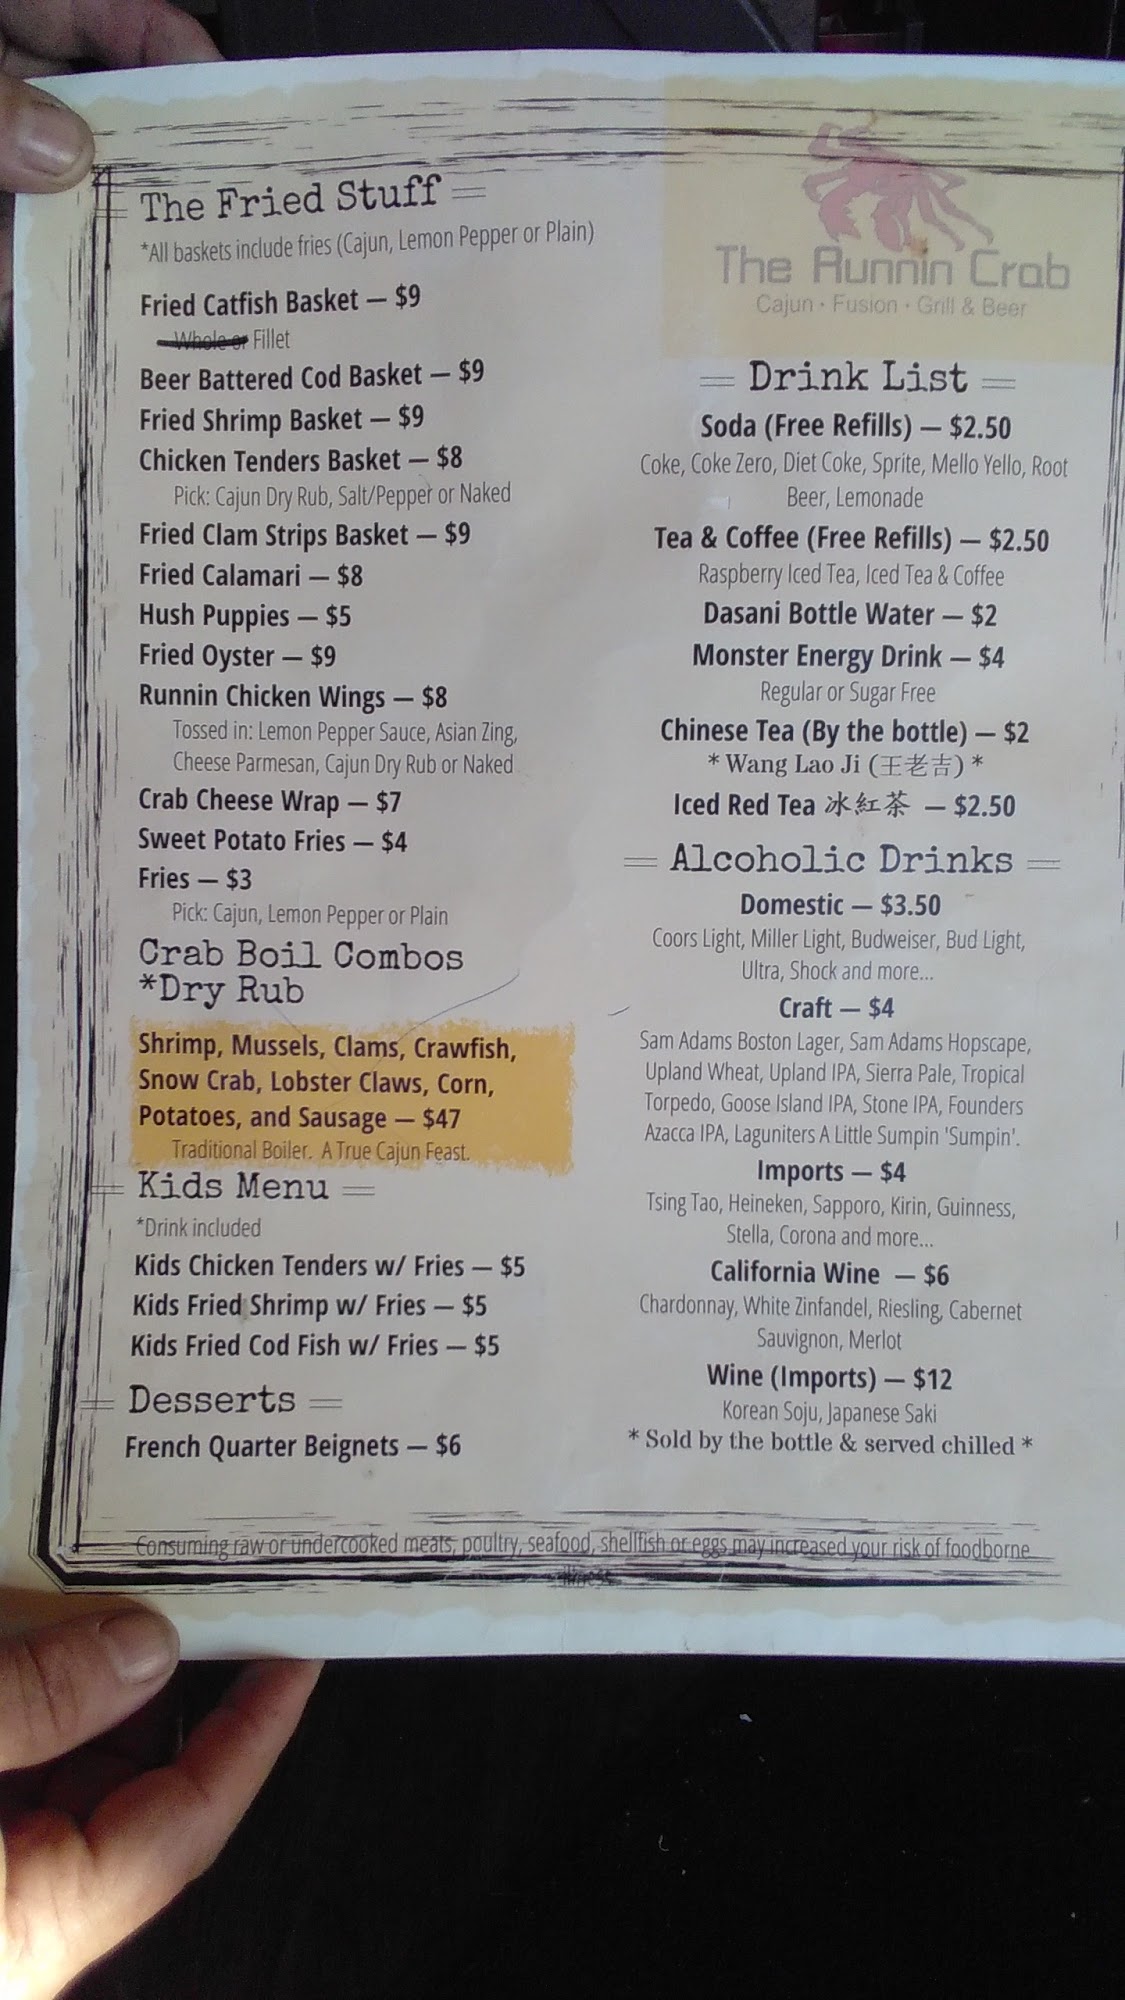 The Fried Stuff
*All baskets include fries (Cajun, Lemon Pepper or Plain)
Fried Catfish Basket — $9
Whole or Fillet
Beer Battered Cod Basket — $9
Fried Shrimp Basket — $9
Chicken Tenders Basket — $8
Pick: Cajun Dry Rub, Salt/Pepper or Naked
Fried Clam Strips Basket — $9
Fried Calamari — $8
Hush Puppies — $5
Fried Oyster — $9
Runnin Chicken Wings — $8
Tossed in: Lemon Pepper Sauce, Asian Zing,
Cheese Parmesan, Cajun Dry Rub or Naked
Crab Cheese Wrap — $7
Sweet Potato Fries — $4
Fries — $3
Pick: Cajun, Lemon Pepper or Plain
Crab Boil Combos
*Dry Rub
Shrimp, Mussels, Clams, Crawfish,
Snow Crab, Lobster Claws, Corn,
Potatoes, and Sausage — $47
Traditional Boiler. A True Cajun Feast.
Kids Menu
*Drink included
Kids Chicken Tenders w/ Fries — $5
Kids Fried Shrimp w/ Fries — $5
Kids Fried Cod Fish w/ Fries — $5
Desserts
French Quarter Beignets — $6
The Runnin Crab
Cajun · Fusion · Grill & Beer
Drink List
Soda (Free Refills) — $2.50
Coke, Coke Zero, Diet Coke, Sprite, Mello Yello, Root
Beer, Lemonade
Tea & Coffee (Free Refills) — $2.50
Raspberry Iced Tea, Iced Tea & Coffee
Dasani Bottle Water — $2
Monster Energy Drink — $4
Regular or Sugar Free
Chinese Tea (By the bottle) — $2
* Wang Lao Ji (王老吉) *
Iced Red Tea 冰紅茶 — $2.50
Alcoholic Drinks
Domestic — $3.50
Coors Light, Miller Light, Budweiser, Bud Light,
Ultra, Shock and more...
Craft — $4
Sam Adams Boston Lager, Sam Adams Hopscape,
Upland Wheat, Upland IPA, Sierra Pale, Tropical
Torpedo, Goose Island IPA, Stone IPA, Founders
Azacca IPA, Laguniters A Little Sumpin 'Sumpin'.
Imports — $4
Tsing Tao, Heineken, Sapporo, Kirin, Guinness,
Stella, Corona and more...
California Wine — $6
Chardonnay, White Zinfandel, Riesling, Cabernet
Sauvignon, Merlot
Wine (Imports) — $12
Korean Soju, Japanese Saki
* Sold by the bottle & served chilled *
Consuming raw or undercooked meats, poultry, seafood, shellfish or eggs may increased your risk of foodborne